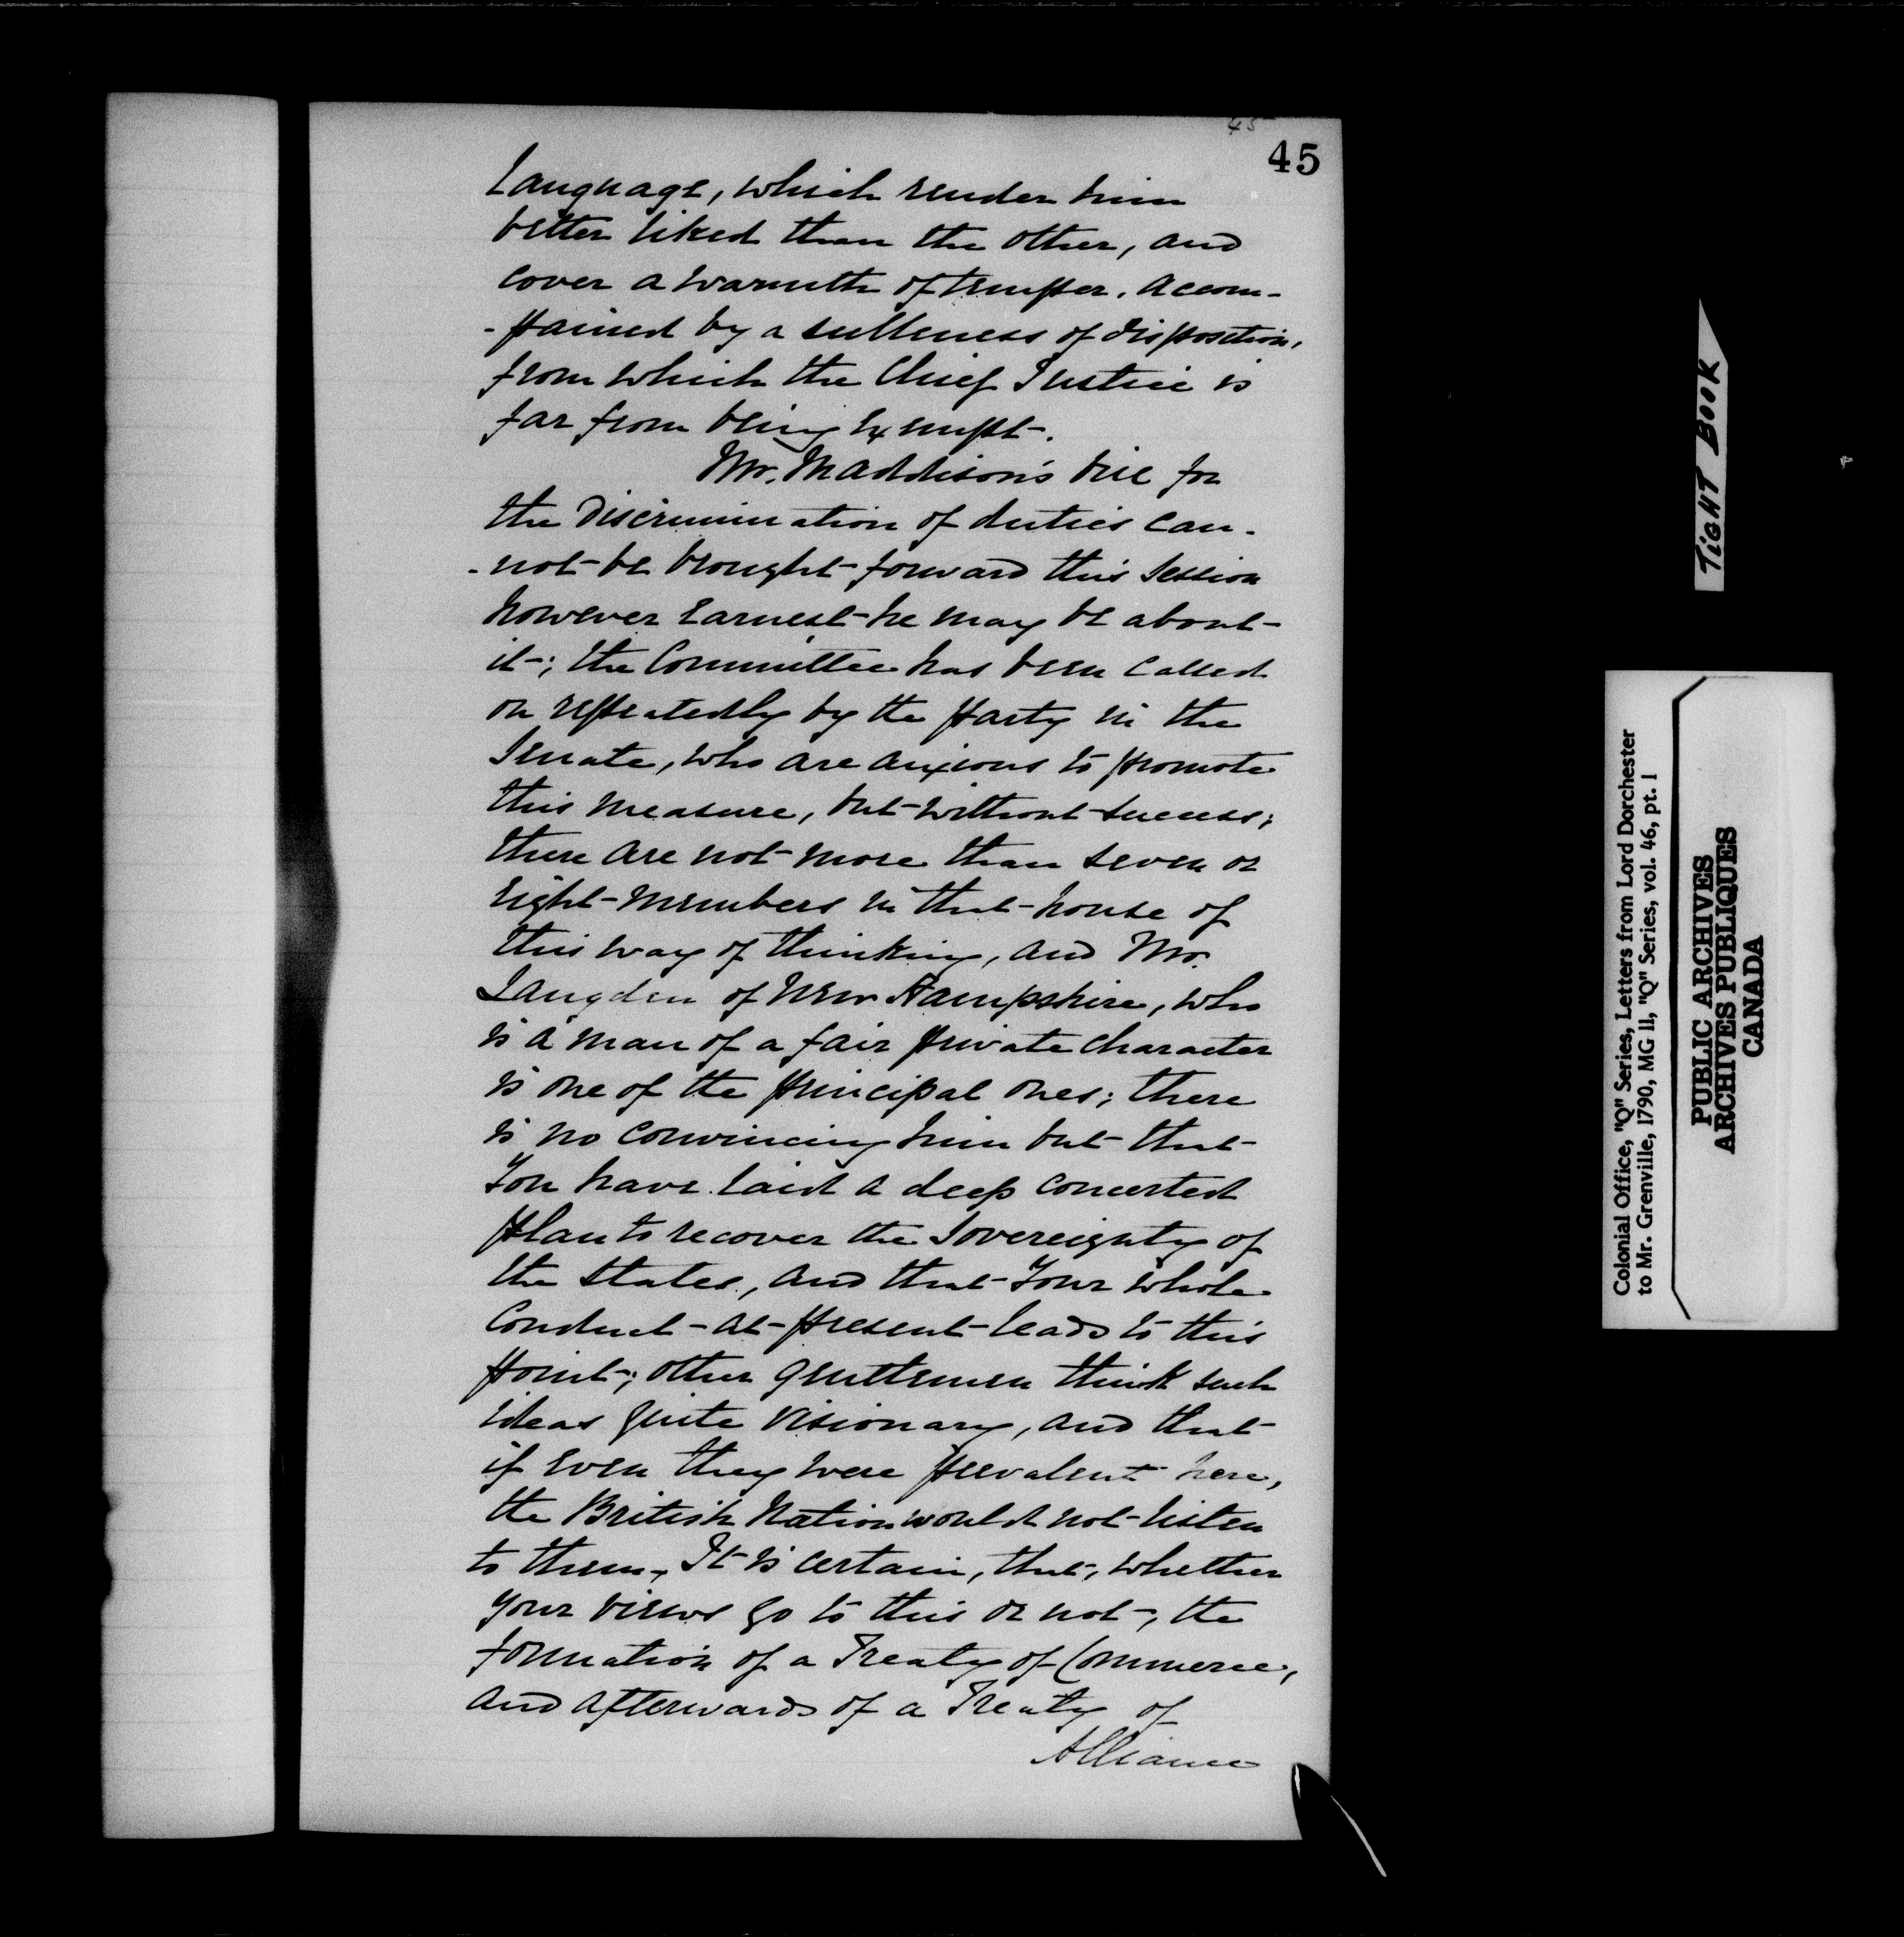 45
45
Language, which render him
better liked than the other, and
cover a warmth of temper, accom-
-pained by a sulleness of disposition,
from which the Chief Justice is
far from being exempt.
Mr. Maddison's bill for
the discrimination of duties can-
-not be brought forward this Session
however earnest he may be about
it; the Committee has been called
on repeatedly by the party in the
Senate, who are anxious to promote
this measure, but without success;
there are not more than seven or
eight members in that house of
this way of thinking, and Mr.
Langden of New Hampshire, who
is a man of a fair private character
is one of the principal ones; there
is no convincing him but that
You have laid a deep concerted
plan to recover the Sovereignty of
the States, and that Your whole
Conduct at present leads to this
point; other gentlemen think such
ideas quite visionary, and that
if even they were prevalent here,
the British Nation would not listen
to them. It is certain, that, whether
your views go to this or not, the
formation of a Treaty of Commerce,
and afterwards of a Treaty of
Alliance
TIGHT BOOK
Colonial Office, "Q" Series, Letters from Lord Dorchester
to Mr. Grenville, 1790, MG 11, "Q" Series, vol. 46, pt. 1
PUBLIC ARCHIVES
ARCHIVES PUBLIQUES
CANADA